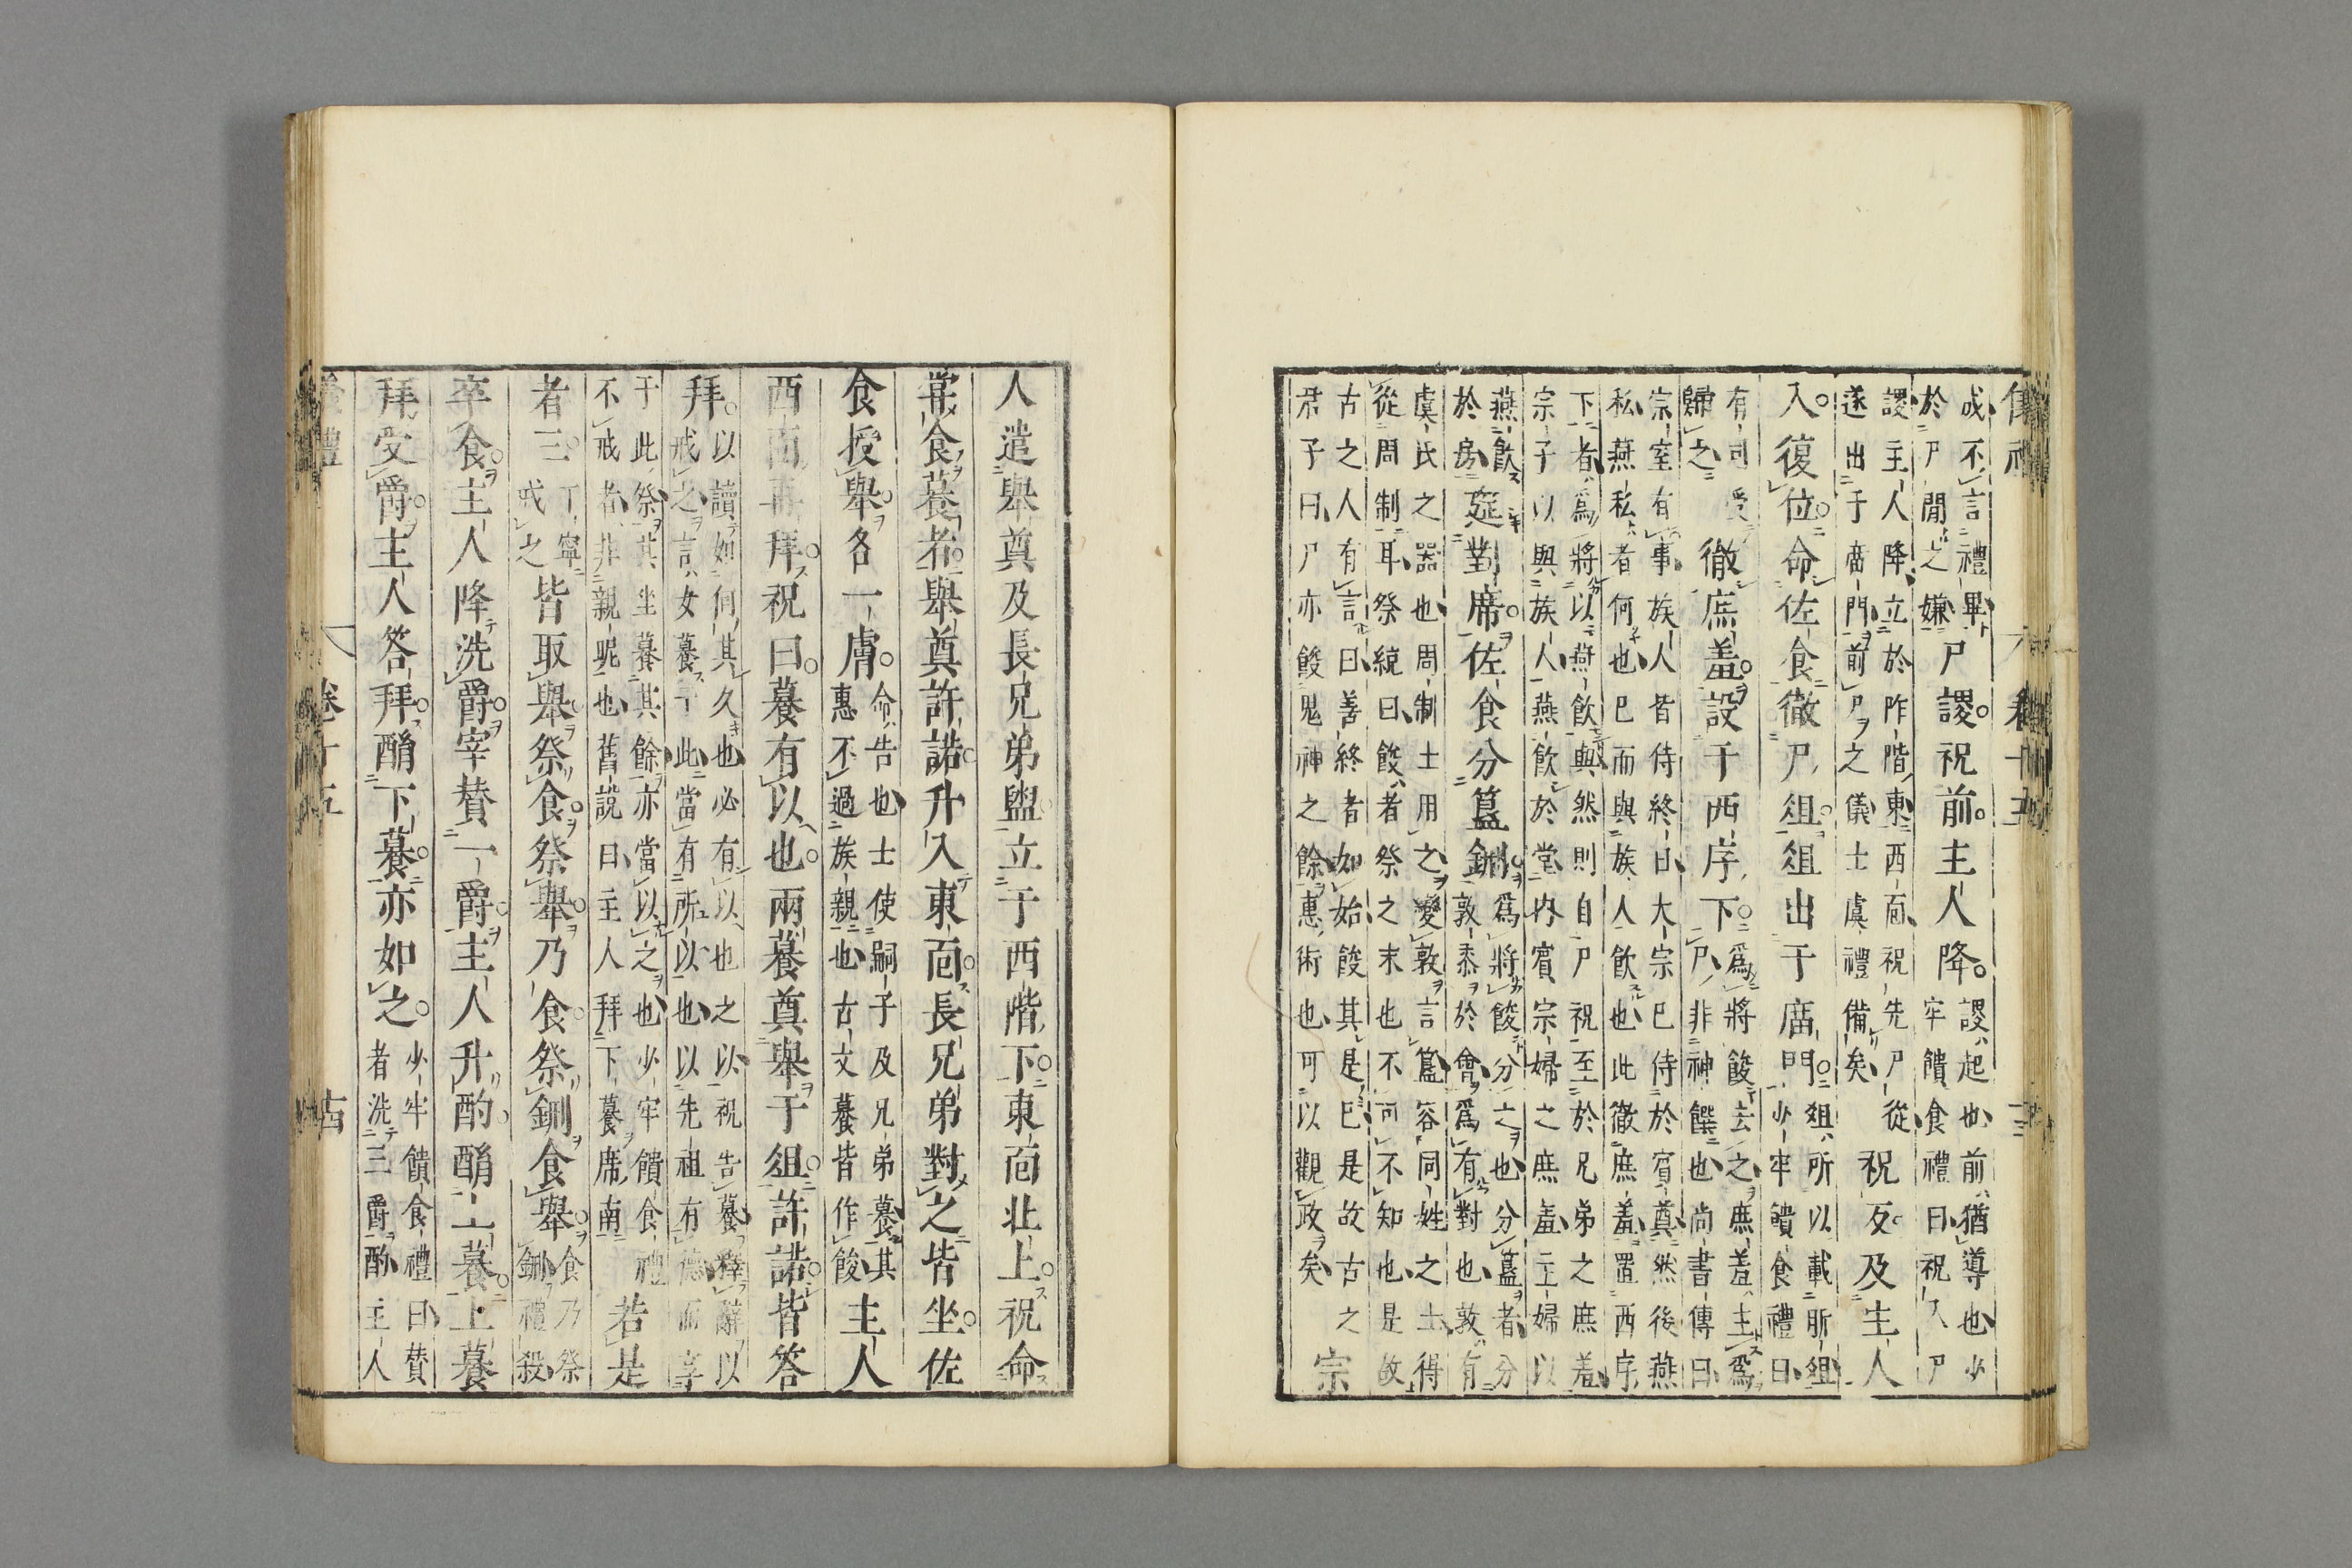 儀禮 卷十五 十三
成不言禮畢於尸閒之嫌尸謖祝前主人降謖起也前猶導也少牢饋食禮曰祝入尸
謖主人降立於阼階東西面祝先尸從遂出于庿門前尸之儀士虞禮備矣祝反及主人
入復位命佐食徹尸俎俎出于庿門俎所以載肵俎少牢饋食禮曰
有司受歸之徹庶羞設于西序下爲將餕去之庶羞主爲尸非神饌也尚書傳曰
宗室有事族人皆侍終日大宗已侍於賓奠然後燕私燕私者何也已而與族人飲也此徹庶羞置西序
下者爲將以燕飲與然則自尸祝至於兄弟之庶羞宗子以與族人燕飲於堂内賓宗婦之庶羞主婦以
燕飲於房筵對席佐食分簋鉶爲將餕分之也分簋者分敦黍於會爲有對也敦有
虞氏之器也周制士用之變敦言簋容同姓之士得從周制耳祭統曰餕者祭之末也不可不知也是故
古之人有言曰善終者如始餕其是已是故古之君子曰尸亦餕鬼神之餘惠術也可以觀政矣宗
人遣舉奠及長兄弟盥立于西階下東面北上祝命
嘗食䭕者舉奠許諾升入東面長兄弟對之皆坐佐
食授舉各一膚命告也士使嗣子及兄弟䭕其惠不過族親也古文䭕皆作餕主人
西面再拜祝曰䭕有以也兩䭕奠舉于俎許諾皆答
拜以讀如何其久也必有以也之以祝告䭕釋辭以戒之言女䭕于此當有所以也以先祖有德而享
于此祭其坐䭕其餘亦當以之也少牢饋食禮不戒者非親昵也舊說曰主人拜下䭕席南若是
者三丁寧戒之皆取舉祭食祭舉乃食祭鉶食舉食乃祭鉶禮殺
卒食主人降洗爵宰贊一爵主人升酌酳上䭕上䭕
拜受爵主人答拜酳下䭕亦如之少牢饋食禮曰贊者洗三爵酌主人
儀禮 卷十五 十四